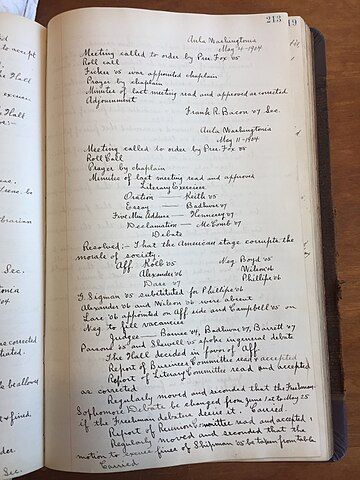 213 19
Aula Washingtonia
May 4-1904
Meeting called to order by Pres. Fox '05
Roll call
Fichere '05 was appointed chaplain
Prayer by chaplain
Minutes of last meeting read and approved as corrected
Adjournment
Frank R. Bacon '07 Sec.
Aula Washingtonia
May 11-1904
Meeting called to order by Pres. Fox '05
Roll Call
Prayer by chaplain
Minutes of last meeting read and approved
Literary Exercises
Oration — Keith '05
Essay — Badham '07
Five Min. Address — Hennessy '07
Declamation — McComb '07
Debate
Resolved:- That the American stage corrupts the
morals of society.
Aff. Kolb '05 Neg. Boyd '05
Alexander '06 Wilson '06
Dare '07 Phillips '06
G. Sigman '05 substituted for Phillips '06
Alexander '06 and Wilson '06 were absent
Lare '06 appointed on Aff side and Campbell '05 on
Neg. to fill vacancies
Judges — Barnes '04, Badham '07, Barrett '07
Parsons '05 and Shewell '05 spoke in general debate
The Hall decided in favor of Aff.
Report of Business Committee read & accepted
Report of Literary Committee read and accepted
as corrected
Regularly moved and seconded that the Freshman-
Sophomore Debate be changed from June 1st to May 25
if the Freshman debaters desire it. Carried.
Report of Reunion Committee read and accepted
Regularly moved and seconded that the
motion to excuse fines of Shipman '05 be taken from table
Carried